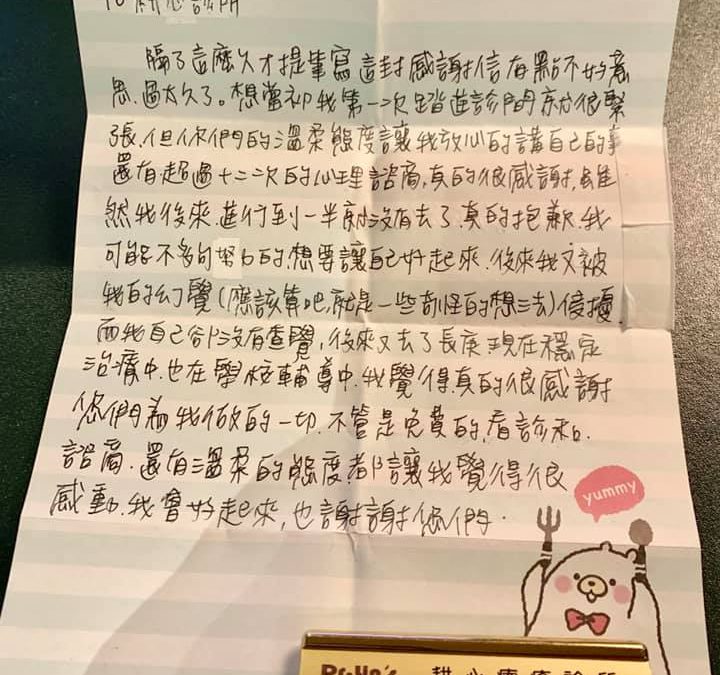 To 耕心診所
隔了這麼久才提筆寫這封感謝信有點不好意
思.過太久了。想當初我第一次踏進診間前都很緊
張.但你們的溫柔態度讓我放心的講自己的事
還有超過十二次的心理諮商,真的很感謝,雖
然我後來進行到一半就沒有去了.真的抱歉.我
可能不夠努力的.想要讓自己好起來.後來我又被
我的幻覺(應該算吧,就是一些奇怪的想法)侵擾.
而我自己卻沒有查覺,後來又去了長庚.現在穩定
治療中.也在學校輔導中.我覺得真的很感謝
你們為我做的一切.不管是免費的,看診和.
諮商.還有溫柔的態度都讓我覺得很
感動.我會好起來,也謝謝你們.
yummy
Dr.Ho's 耕心療癒診所